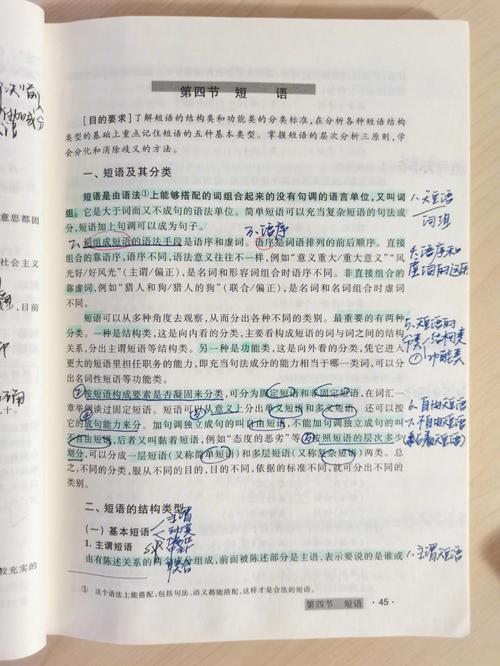 第四节 短 语
[目的要求] 了解短语的结构类和功能类的分类标准,在分析各种短语结构
类型的基础上重点记住短语的五种基本类型。掌握短语的层次分析三原则,学
会分化和消除歧义的方法。
一、短语及其分类
短语是由语法①上能够搭配的词组合起来的没有句调的语言单位,又叫词
组。它是大于词而又不成句的语法单位。简单短语可以充当复杂短语的句法成
分,短语加上句调可以成为句子。
3.语序
组成短语的语法手段是语序和虚词。语序是词语排列的前后顺序。直接
组合的靠语序,语序不同,语法意义往往不一样,例如“意义重大/重大意义”“风
光好/好风光”(主谓/偏正),是名词和形容词组合时语序不同。非直接组合的
靠虚词,例如“猎人和狗/猎人的狗”(联合/偏正),是名词和名词组合时虚词
不同。
短语可以从多种角度去观察,从而分出各种不同的类别。最重要的有两种
分类。一种是结构类,这是向内看的分类,主要看构成短语的词与词之间的结构
关系,分出主谓短语等结构类。另一种是功能类,这是向外看的分类,凭它进入
更大的短语里担任职务的能力,即充当句法成分的能力相当于哪一类词,可以分
出名词性短语等功能类。
①按短语构成要素是否凝固来分类,可分为固定短语和非固定短语,在词汇一
章举谈过固定短语。短语可以从意义上分出单义短语和多义短语。还可以按
它的成句能力来分。加句调独立成句的叫自由短语,不能加句调独立成句的叫
不自由短语,后者又叫黏着短语,例如“态度的恶劣”等。按照短语的层次多少
划分,可以分成一层短语(又称简单短语)和多层短语(又称复杂短语)两类。总
之,不同的分类,服从不同的目的,目的不同,依据的标准不同,就可分出不同的
类别。
二、短语的结构类型
(一) 基本短语
主谓
动宾
偏正
中补
联合
1. 主谓短语
由有陈述关系的两个成分组成,前面被陈述部分是主语,表示要说的是谁或
① 这个语法上能搭配,包括句法、语义都能搭配,这样才是合法的短语。
第四节 短语 · 45 ·
1.短语
词组
短语的
分类
结构类
功能类
自由短语
不自由短语
1.主谓短语
意思都固
社会主义
,目前
校充实的